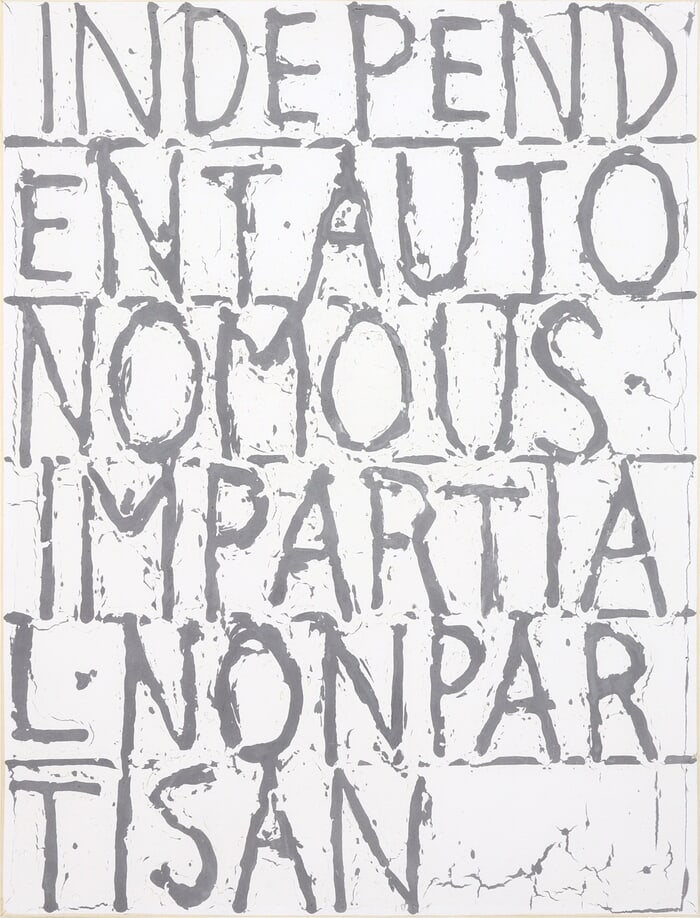 INDEPEND
ENT·AUTO
NOMOUS·
IMPARTIA
L·NONPAR
TISAN